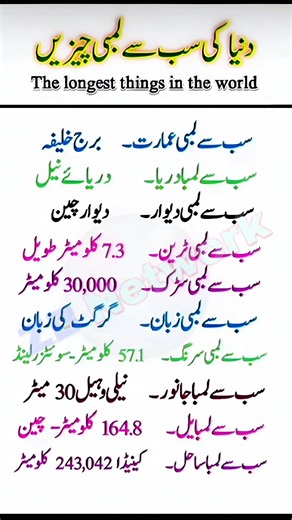 دنیا کی سب سے لمبی چیزیں
The longest things in the world
سب سے لمبی عمارت۔ برج خلیفہ
سب سے لمبا دریا۔ دریائے نیل
سب سے لمبی دیوار۔ دیوار چین
سب سے لمبی ٹرین۔ 7.3 کلومیٹر طویل
سب سے لمبی سڑک۔ 30,000 کلومیٹر
سب سے لمبی زبان۔ گرگٹ کی زبان
سب سے لمبی سرنگ۔ 57.1 کلومیٹر- سوئٹزرلینڈ
سب سے لمبا جانور۔ نیلی وہیل 30 میٹر
سب سے لمبا پل۔ 164.8 کلومیٹر- چین
سب سے لمبا ساحل۔ کینیڈا 243,042 کلومیٹر
Network